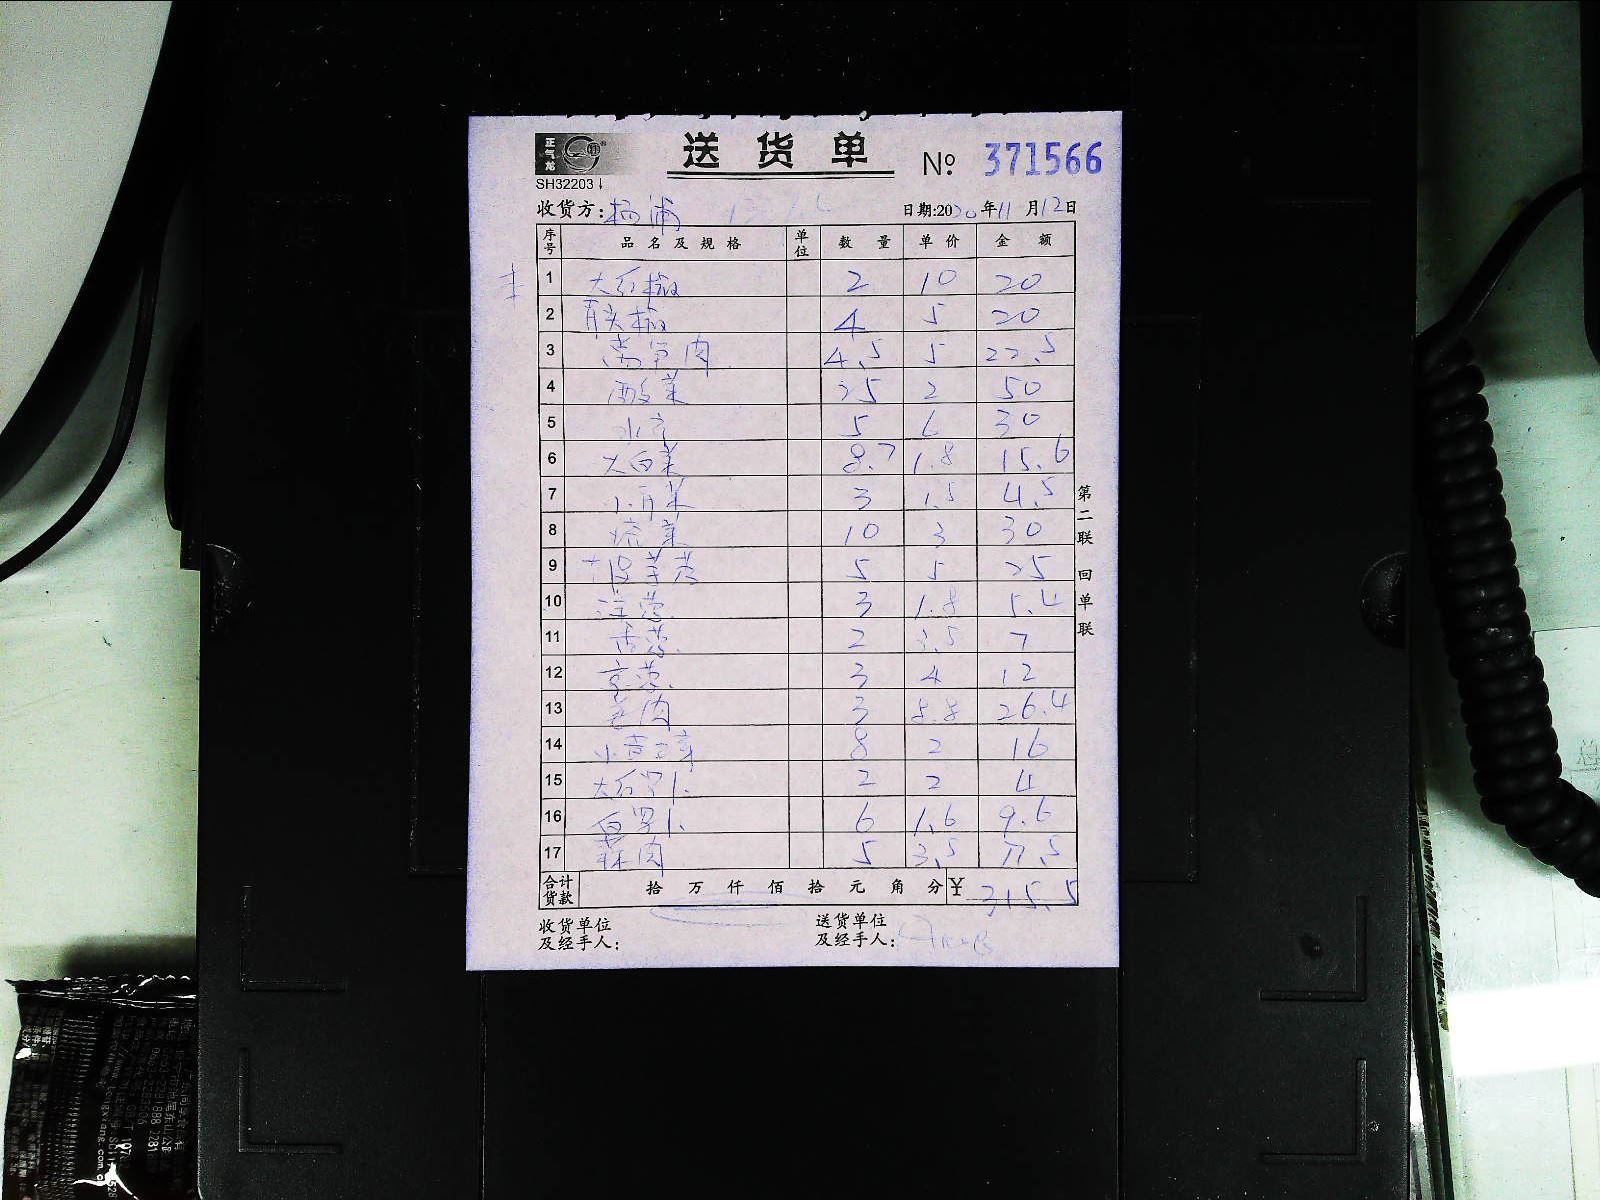 正气龙
送货单 № 371566
SH32203
收货方:杨浦 日期:2020年11月12日
序号 品名及规格 单位 数量 单价 金额
1 大红椒 2 10 20
2 青尖椒 4 5 20
3 莴笋肉 4.5 5 22.5
4 酸菜 25 2 50
5 5 6 30
6 大白菜 8.7 1.8 15.6
7 3 1.5 4.5
8 10 3 30
9 5 5 25
10 洋葱 3 1.8 5.4
11 香葱 2 3.5 7
12 京葱 3 4 12
13 姜肉 3 8.8 26.4
14 8 2 16
15 大红罗卜 2 2 4
16 白罗卜 6 1.6 9.6
17 蒜肉 5 3.5 17.5
合计货款 拾 万 仟 佰 拾 元 角 分 ¥ 315.5
收货单位及经手人:
送货单位及经手人:
第二联 回单联